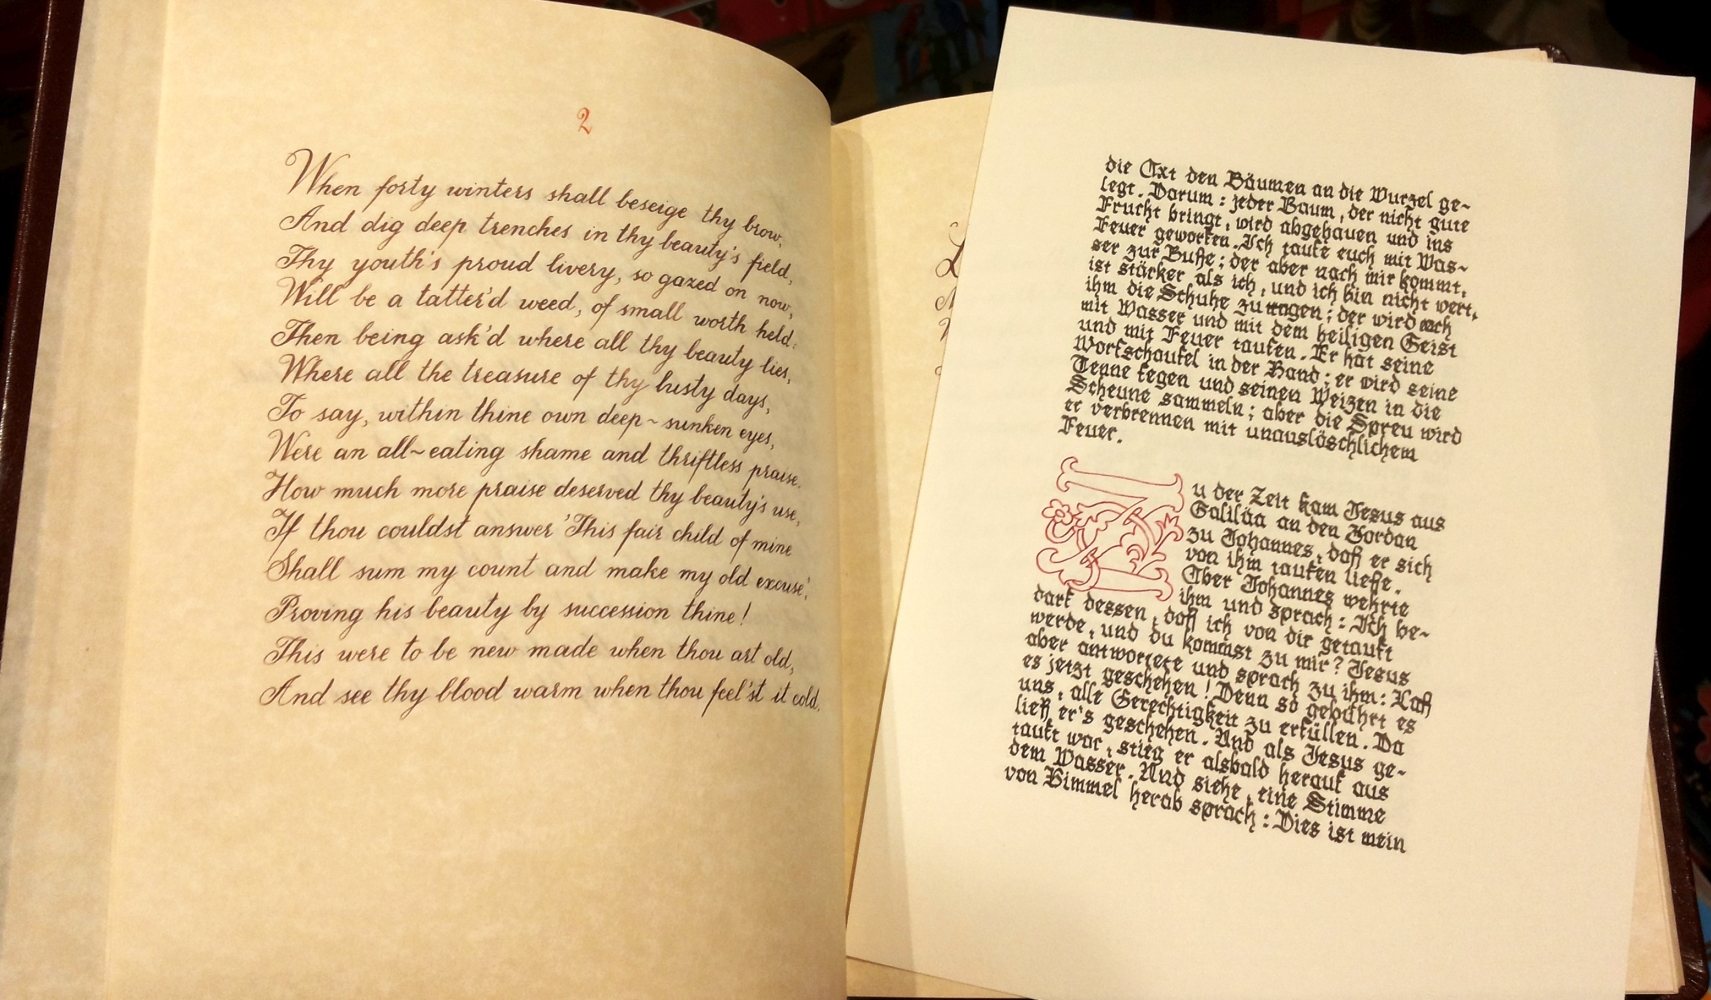 2
When forty winters shall beseige thy brow,
And dig deep trenches in thy beauty's field,
Thy youth's proud livery, so gazed on now,
Will be a tatter'd weed, of small worth held:
Then being ask'd where all thy beauty lies,
Where all the treasure of thy lusty days,
To say, within thine own deep~sunken eyes,
Were an all~eating shame and thriftless praise.
How much more praise deserved thy beauty's use,
If thou couldst answer 'This fair child of mine
Shall sum my count and make my old excuse',
Proving his beauty by succession thine!
This were to be new made when thou art old,
And see thy blood warm when thou feel'st it cold.
die Axt den Bäumen an die Wurzel ge~
legt. Darum: jeder Baum, der nicht gute
Frucht bringt, wird abgehauen und ins
Feuer geworfen. Ich taufe euch mit Was~
ser zur Buße; der aber nach mir kommt,
ist stärker als ich, und ich bin nicht wert,
ihm die Schuhe zu tragen; der wird euch
mit Wasser und mit dem heiligen Geist
und mit Feuer taufen. Er hat seine
Worfschaufel in der Hand; er wird seine
Tenne fegen und seinen Weizen in die
Scheune sammeln; aber die Spreu wird
er verbrennen mit unauslöschlichem
Feuer.
Zu der Zeit kam Jesus aus
Galiläa an den Jordan
zu Johannes, daß er sich
von ihm taufen ließe.
Aber Johannes wehrte
ihm und sprach: Ich be~
darf dessen, daß ich von dir getauft
werde, und du kommst zu mir? Jesus
aber antwortete und sprach zu ihm: Laß
es jetzt geschehen! Denn so gebührt es
uns, alle Gerechtigkeit zu erfüllen. Da
ließ er's geschehen. Und als Jesus ge~
tauft war, stieg er alsbald herauf aus
dem Wasser. Und siehe, eine Stimme
von Himmel herab sprach: Dies ist mein